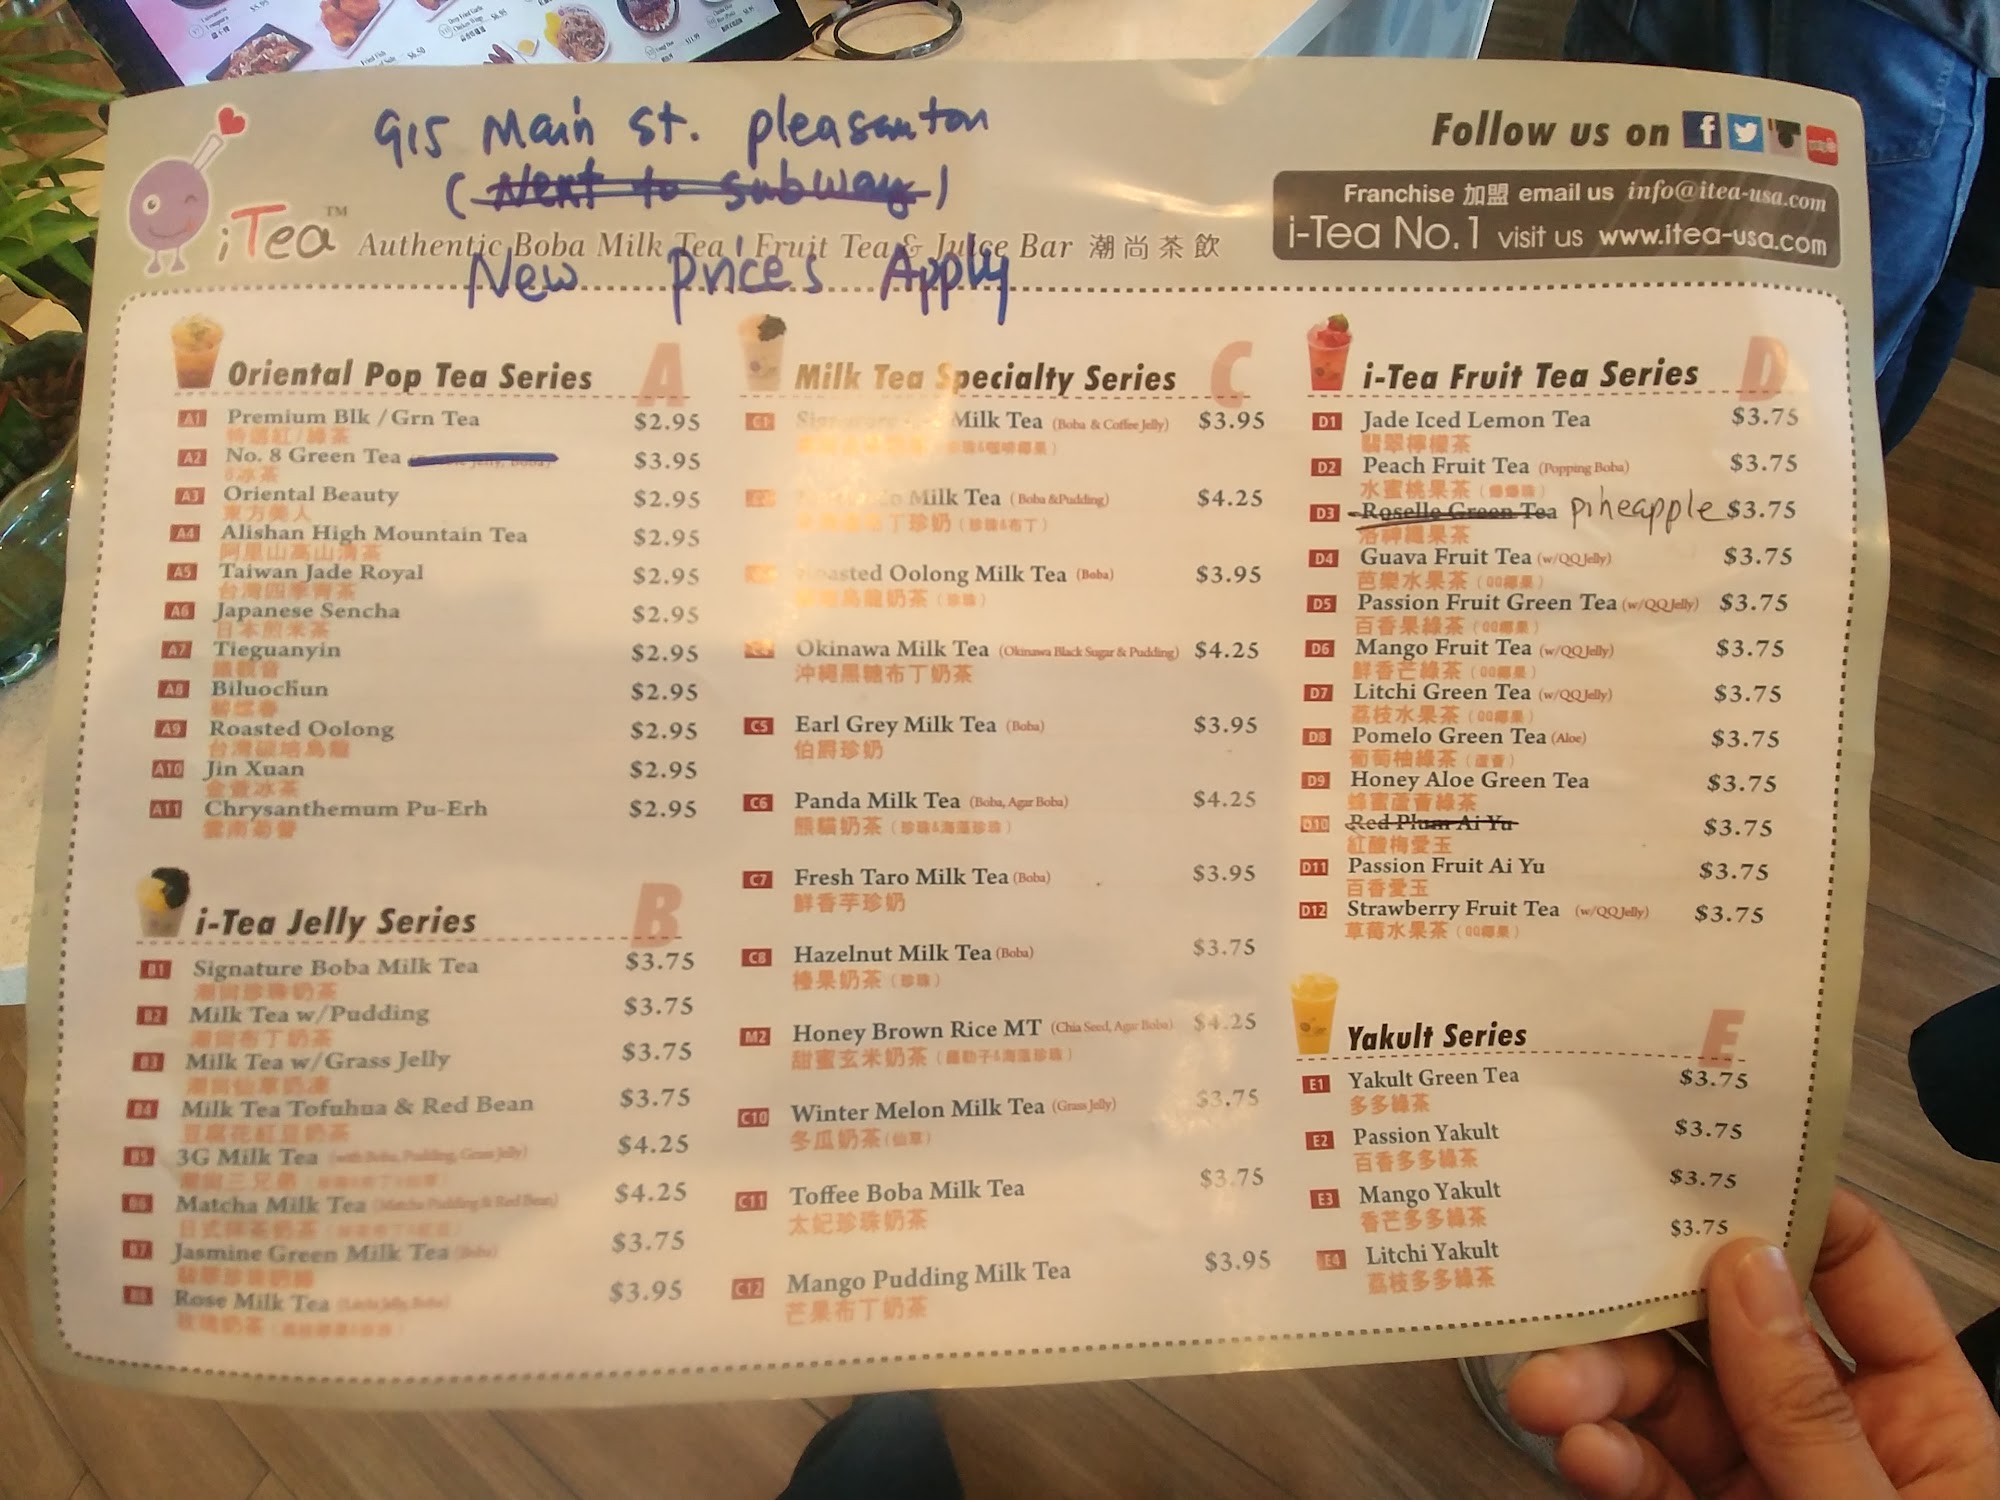 915 Main St. pleasanton
(Next to subway)
New prices Apply
iTea™
Authentic Boba Milk Tea | Fruit Tea & Juice Bar 潮尚茶飲
Follow us on
Franchise 加盟 email us info@itea-usa.com
i-Tea No.1 visit us www.itea-usa.com
Oriental Pop Tea Series A
A1 Premium Blk /Grn Tea $2.95
特選紅/綠茶
A2 No. 8 Green Tea $3.95
8冰茶
A3 Oriental Beauty $2.95
東方美人
A4 Alishan High Mountain Tea $2.95
阿里山高山清茶
A5 Taiwan Jade Royal $2.95
台灣四季青茶
A6 Japanese Sencha $2.95
日本煎米茶
A7 Tieguanyin $2.95
鐵觀音
A8 Biluochun $2.95
碧螺春
A9 Roasted Oolong $2.95
台灣碳培烏龍
A10 Jin Xuan $2.95
金萱冰茶
A11 Chrysanthemum Pu-Erh $2.95
雲南菊普
i-Tea Jelly Series B
B1 Signature Boba Milk Tea $3.75
潮尚珍珠奶茶
B2 Milk Tea w/Pudding $3.75
潮尚布丁奶茶
B3 Milk Tea w/Grass Jelly $3.75
潮尚仙草奶凍
B4 Milk Tea Tofuhua & Red Bean $3.75
豆腐花紅豆奶茶
B5 3G Milk Tea (with Boba, Pudding, Grass Jelly) $4.25
潮尚三兄弟
B6 Matcha Milk Tea (Matcha Pudding & Red Bean) $4.25
日式抹茶奶茶
B7 Jasmine Green Milk Tea (Boba) $3.75
翡翠珍珠奶綠
B8 Rose Milk Tea (Litchi Jelly, Boba) $3.95
玫瑰奶茶
Milk Tea Specialty Series C
C1 Signature Milk Tea (Boba & Coffee Jelly) $3.95
珍珠&咖啡椰果)
Milk Tea (Boba &Pudding) $4.25
布丁珍奶 (珍珠&布丁)
Roasted Oolong Milk Tea (Boba) $3.95
烏龍奶茶 (珍珠)
Okinawa Milk Tea (Okinawa Black Sugar & Pudding) $4.25
沖繩黑糖布丁奶茶
C5 Earl Grey Milk Tea (Boba) $3.95
伯爵珍奶
C6 Panda Milk Tea (Boba, Agar Boba) $4.25
熊貓奶茶 (珍珠&海藻珍珠)
C7 Fresh Taro Milk Tea (Boba) $3.95
鮮香芋珍奶
C8 Hazelnut Milk Tea (Boba) $3.75
榛果奶茶 (珍珠)
M2 Honey Brown Rice MT (Chia Seed, Agar Boba) $4.25
甜蜜玄米奶茶 (羅勒子&海藻珍珠)
C10 Winter Melon Milk Tea (Grass Jelly) $3.75
冬瓜奶茶 (仙草)
C11 Toffee Boba Milk Tea $3.75
太妃珍珠奶茶
C12 Mango Pudding Milk Tea $3.95
芒果布丁奶茶
i-Tea Fruit Tea Series D
D1 Jade Iced Lemon Tea $3.75
翡翠檸檬茶
D2 Peach Fruit Tea (Popping Boba) $3.75
水蜜桃果茶 (爆爆珠)
D3 Roselle Green Tea pineapple $3.75
洛神纖果茶
D4 Guava Fruit Tea (w/QQ Jelly) $3.75
芭樂水果茶 (QQ椰果)
D5 Passion Fruit Green Tea (w/QQ Jelly) $3.75
百香果綠茶 (QQ椰果)
D6 Mango Fruit Tea (w/QQ Jelly) $3.75
鮮香芒綠茶 (QQ椰果)
D7 Litchi Green Tea (w/QQ Jelly) $3.75
荔枝水果茶 (QQ椰果)
D8 Pomelo Green Tea (Aloe) $3.75
葡萄柚綠茶 (蘆薈)
D9 Honey Aloe Green Tea $3.75
蜂蜜蘆薈綠茶
D10 Red Plum Ai Yu $3.75
紅酸梅愛玉
D11 Passion Fruit Ai Yu $3.75
百香愛玉
D12 Strawberry Fruit Tea (w/QQ Jelly) $3.75
草莓水果茶 (QQ椰果)
Yakult Series E
E1 Yakult Green Tea $3.75
多多綠茶
E2 Passion Yakult $3.75
百香多多綠茶
E3 Mango Yakult $3.75
香芒多多綠茶
E4 Litchi Yakult $3.75
荔枝多多綠茶